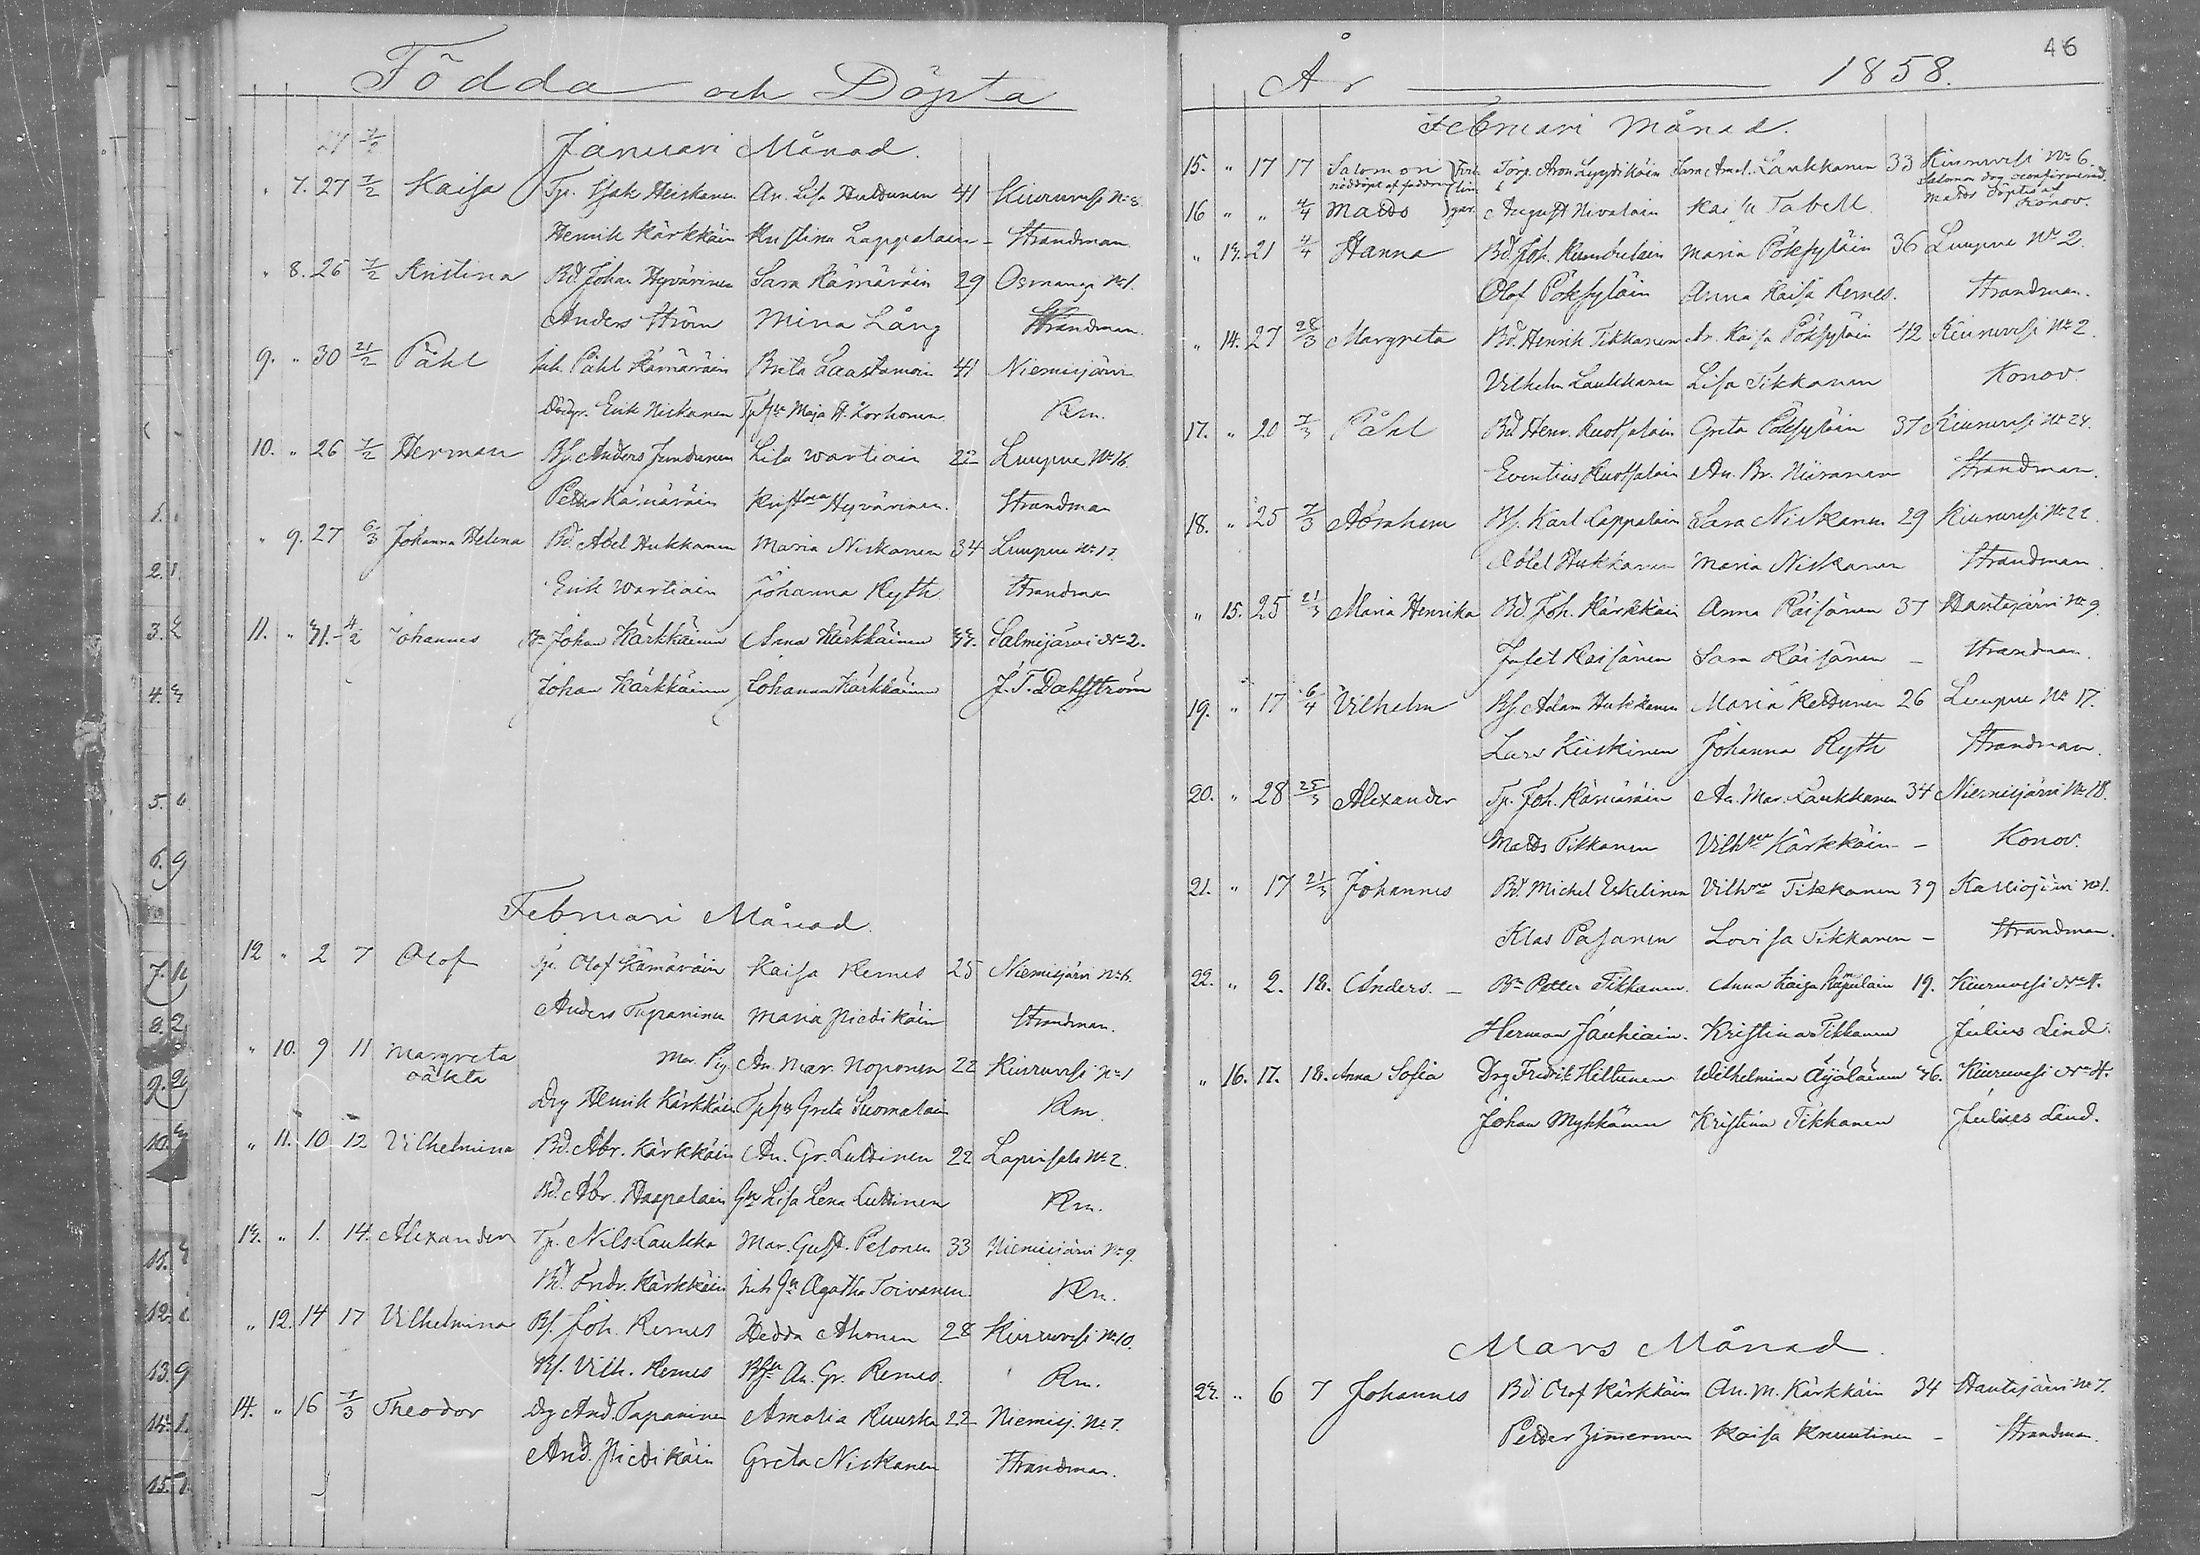 Födda och Döpta
Januari Månad.
" 7. 27 7/2 Kaisa Tp. Isak Heiskanen An. Lisa Huttunen 41 Kiuruvesi No 8.
Henrik Kärkkäin Kristina Lappalain - Strandman
" 8. 26 7/2 Kristina Bd. Johan Hyvärinen Sara Kämäräin 29 Osmangi No 1.
Anders Ström Mina Lång Strandman.
9. " 30 21/2 Påhl Inh. Påhl Kämäräin Brita Laastamoin 41 Niemisjärvi
Erik Niskanen Maja H. Korhonen Rm.
10. " 26 7/2 Herman Bs. Anders Junttunen Lisa Wartiain 22 Luupue No 16.
Petter Kämäräin Kristina Hyvärinen. Strandman
" 9. 27 6/3 Johanna Helena Bd. Abel Hukkanen Maria Niskanen 34 Luupue No 17.
Erik Wartiain Johanna Ryth Strandman
11. " 31. 4/2 Johannes Bn Johan Kärkkäinen Anna Kärkkäinen 33. Salmijärvi No 2.
Johan Kärkkäinen Johanna Kärkkäinen J. T. Dahlström
Februari Månad.
12 " 2 7 Olof Tp. Olof Kämäräin Kaisa Remes 25 Niemisjärvi No 6.
Anders Tapaninen Maria Pietikäin Strandman.
" 10. 9 11 Margreta oäkta Mar. Pig. An. Mar. Noponen 22 Kiuruvesi No 1
Drg Henrik Kärkkäin Greta Suomalain Rm.
" 11. 10 12 Vilhelmina Bd. Abr. Kärkkäin An. Gr. Luttinen 22 Lapinsalo No 2.
Bd. Abr. Haapalain Lisa Lena Luttinen Rm.
13. " 1. 14. Alexander Tp. Nils Laukka Mar. Gust. Pesonen 33 Niemisjärvi No 9.
Bd. Fredr. Kärkkäin Agatha Toivanen. Rm.
" 12. 14 17 Vilhelmina Bs. Joh. Remes Hedda Ahonen 28 Kiuruvesi No 10.
Bs. Vilh. Remes An. Gr. Remes. Rm.
14. " 16 7/3 Theodor Drg And. Tapaninen Amalia Ruuska 22 Niemisj. No 7.
And. Pietikäin Greta Niskanen Strandman.
46
År 1858.
Februari Månad.
15. " 17 17 Salomon Torp. Aron Lyydikäin Sara Amal. Laukkanen 33 Kiuruvesi No 6.
nöddöpt af fadren
Salomon dog oconfirmerad.
16 " " 4/4 Matts August Nivalain Kaisa Tabell Matts döptes af Konov.
" 13. 21 4/4 Hanna Bd. Joh. Kumbulain Maria Pöksyläin 36 Luupue No 2.
Olof Pöksyläin Anna Kaisa Remes. Strandman.
" 14. 27 28/3 Margreta Bd. Henrik Tikkanen An. Kaisa Pöksyläin 42 Kiuruvesi No 2.
Vilhelm Laukkanen Lisa Tikkanen Konov.
17. " 20 7/3 Påhl Bd. Henr. Ruotsalain Greta Pöksyläin 37 Kiuruvesi No 24.
Eventius Ruotsalain An. Br. Niiranen Strandman.
18. " 25 7/3 Abraham Bs. Karl Lappalain Sara Niskanen 29 Kiuruvesi No 22.
Abel Hukkanen Maria Niskanen Strandman.
" 15. 25 21/3 Maria Henrika Bd. Joh. Kärkkäin Anna Räisänen 37 Hautajärvi No 9.
Josef Räisänen Sara Räisänen - Strandman.
19. " 17 6/4 Vilhelm Bs. Adam Hukkanen Maria Kettunen 26 Luupue No 17.
Lars Kiiskinen Johanna Ryth Strandman.
20. " 28 25/3 Alexander Tp. Joh. Kämäräin An. Mar. Laukkanen 34 Niemisjärvi No 18.
Matts Tikkanen Vilhna Kärkkäin - Konov.
21. " 17 21/3 Johannes Bd. Michel Eskelinen Vilhna Tikkanen 39 Kalliojärvi No 1.
Klas Pasanen Lovisa Tikkanen - Strandman.
22. " 2. 18. Anders. Bn Petter Tikkanen. Anna Kaisa 19. Kiuruvesi No 4.
Herman Jauhiain. Kristina Tikkanen Julius Lind.
" 16. 17. 18. Anna Sofia Drg Fredrik Hiltunen Wilhelmina Äyöläinen 36. Kiuruvesi No 4.
Johan Mykkänen Kristina Tikkanen Julius Lind.
Mars Månad.
23. " 6 7 Johannes Bd. Olof Kärkkäin An. M. Kärkkäin 34 Hautajärvi No 7.
Petter Zimerman Kaisa Knuutinen - Strandman.